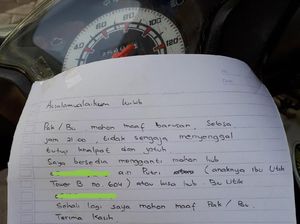 20
40
60
80
100
120
Assalamualaikum wr.wb
Pak / Bu mohon maaf barusan, Selasa
jam 21.00, tidak sengaja menyenggol
tutup knalpot dan jatuh.
Saya bersedia mengganti mohon hub
an Putri (anaknya Ibu Utik
Tower B no. 604) atau bisa hub. Bu Utik
Sekali lagi saya mohon maaf Pak / Bu.
Terima Kasih.